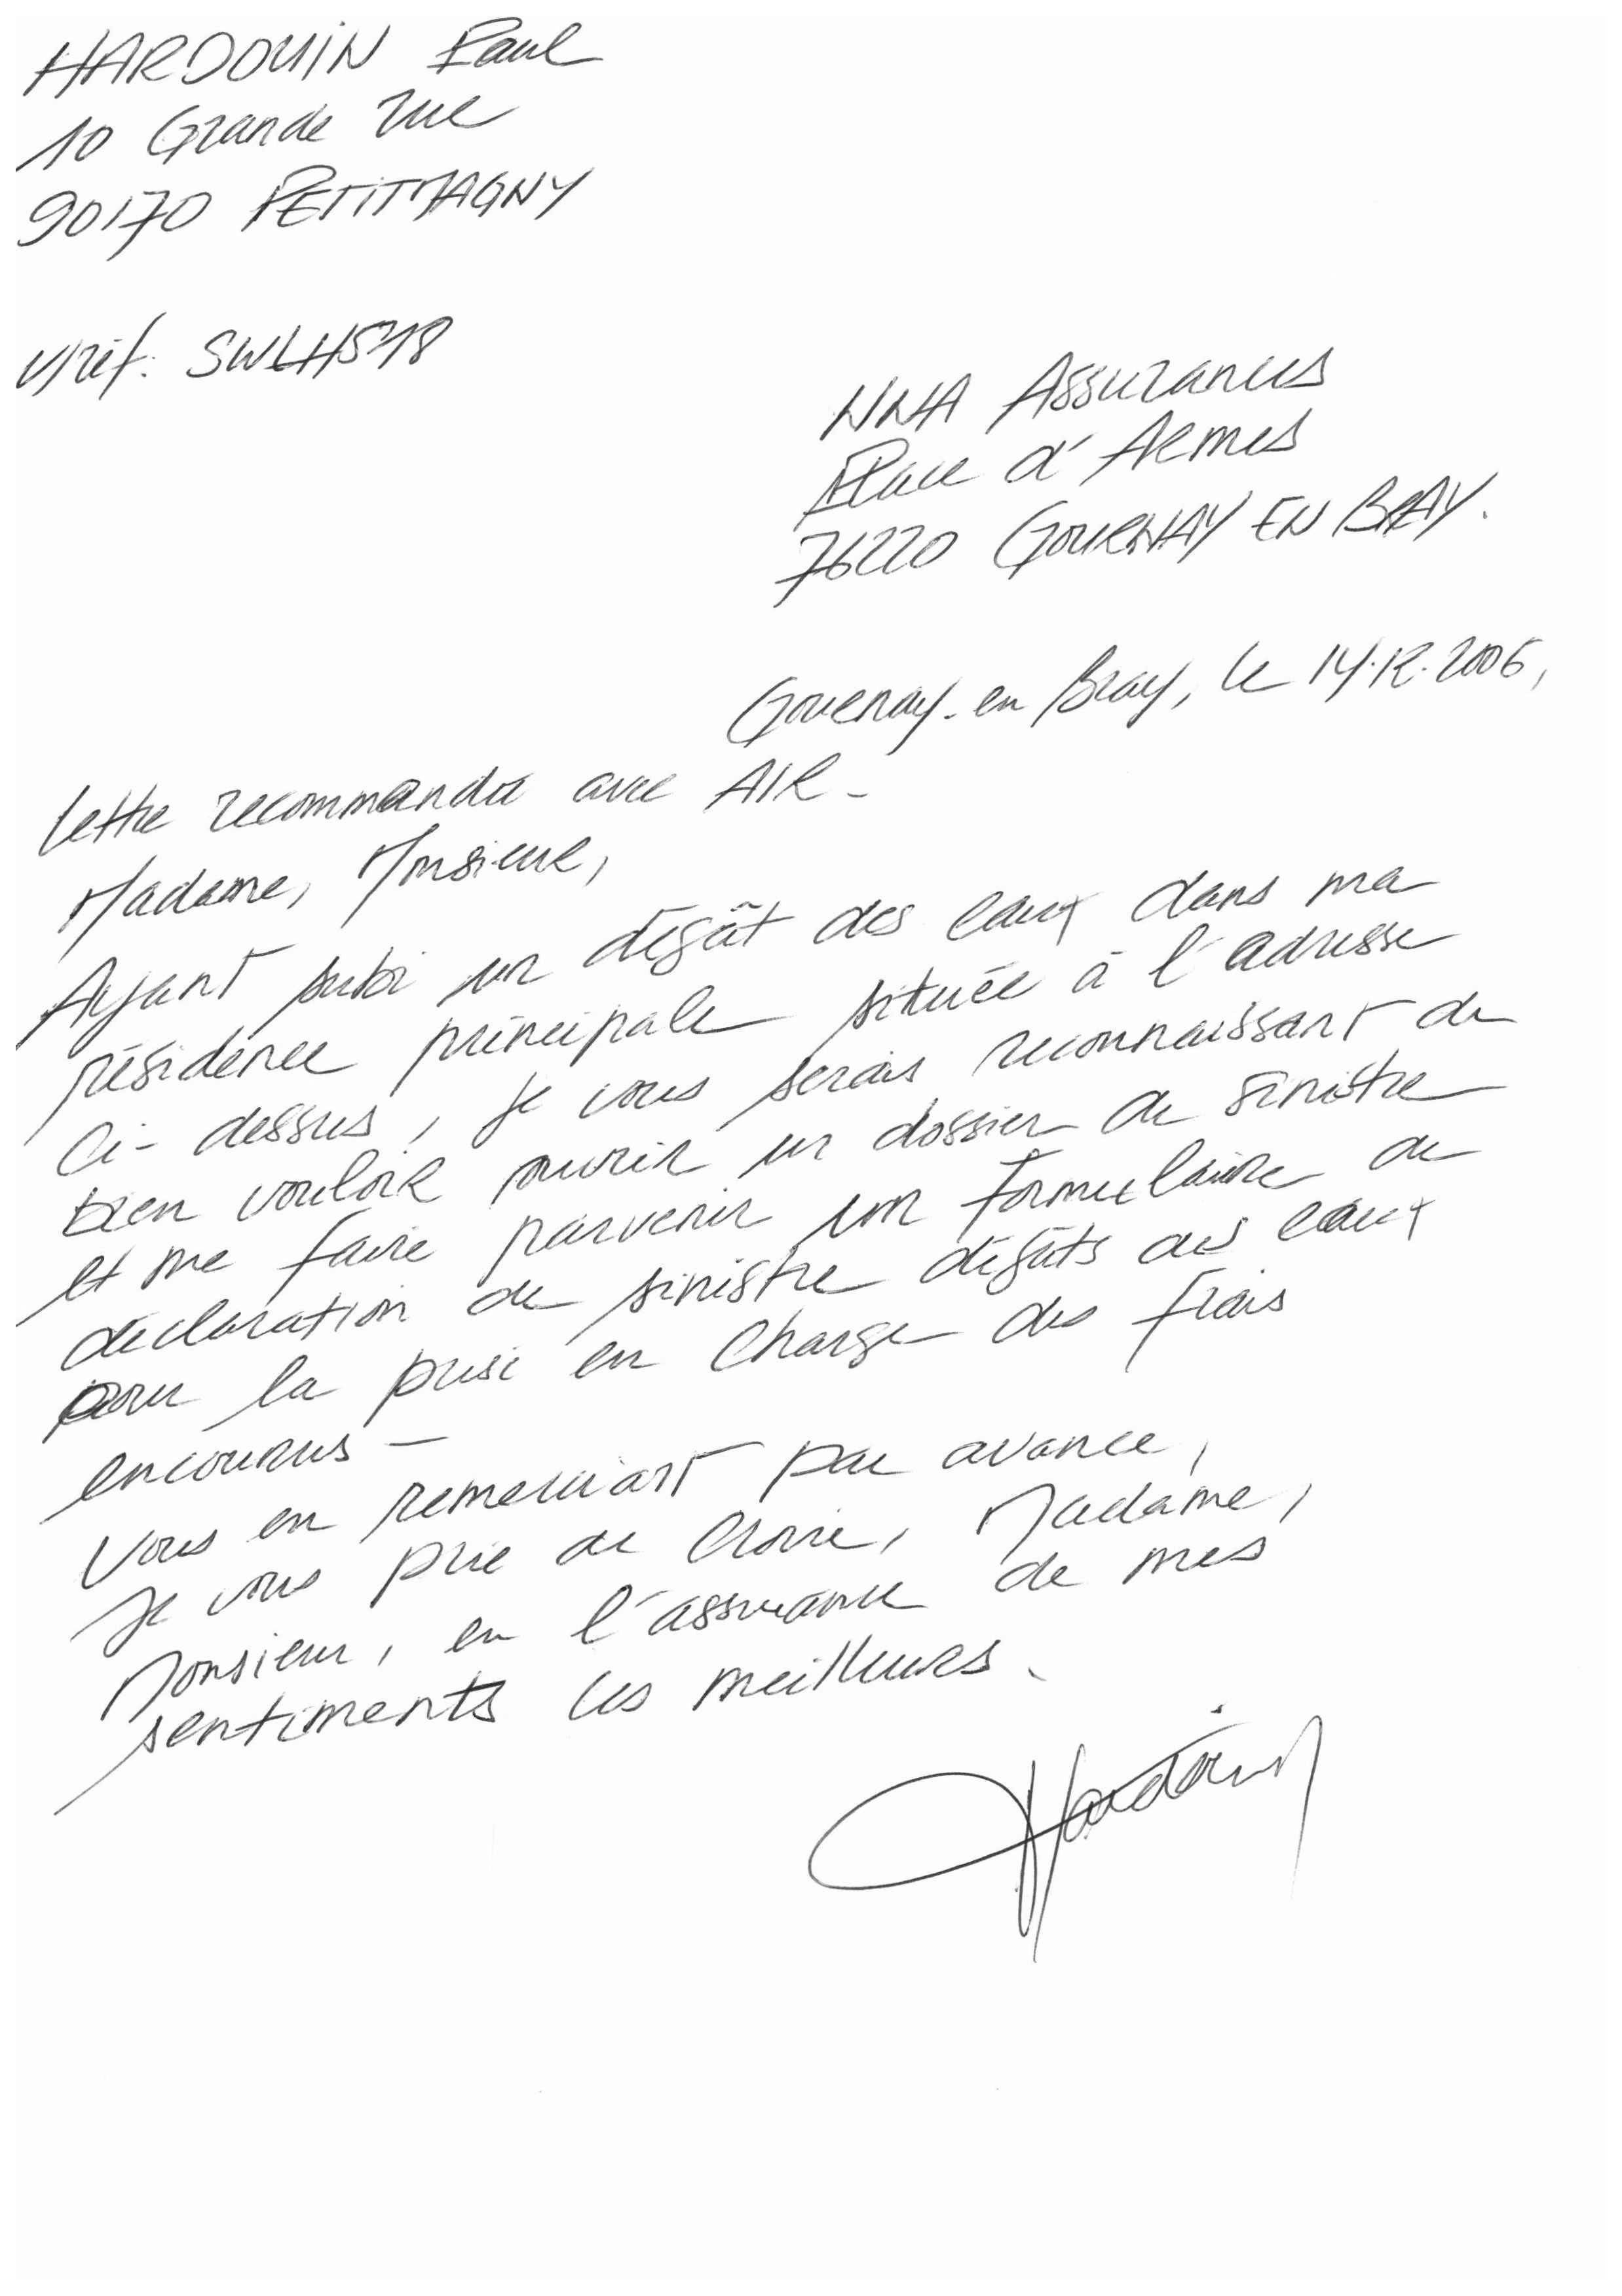 HARDOUIN Paul
10 Grande rue
90170 PETITMAGNY
V/réf. SWLH578
NNA Assurances
Place d'Armes
76220 GOURNAY EN BRAY.
Gournay-en Bray, le 14.12.2006,
lettre recommandée avec A/R -
Madame, Monsieur,
Ayant subi un dégât des eaux dans ma
résidence principale située à l'adresse
Ci-dessus, je vous serais reconnaissant de
bien vouloir ouvrir un dossier de sinistre
et me faire parvenir un formulaire de
déclaration de sinistre dégâts des eaux
pour la prise en charge des frais
encourus -
Vous en remerciant par avance,
Je vous prie de croire, Madame,
Monsieur, en l'assurance de mes
sentiments les meilleurs.
Hardouin